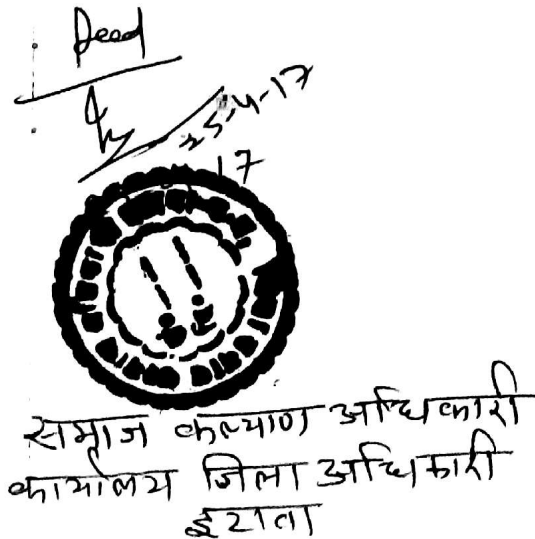 25-4-17
17
समाज कल्याण अधिकारी
कार्यालय जिला अधिकारी
इटावा